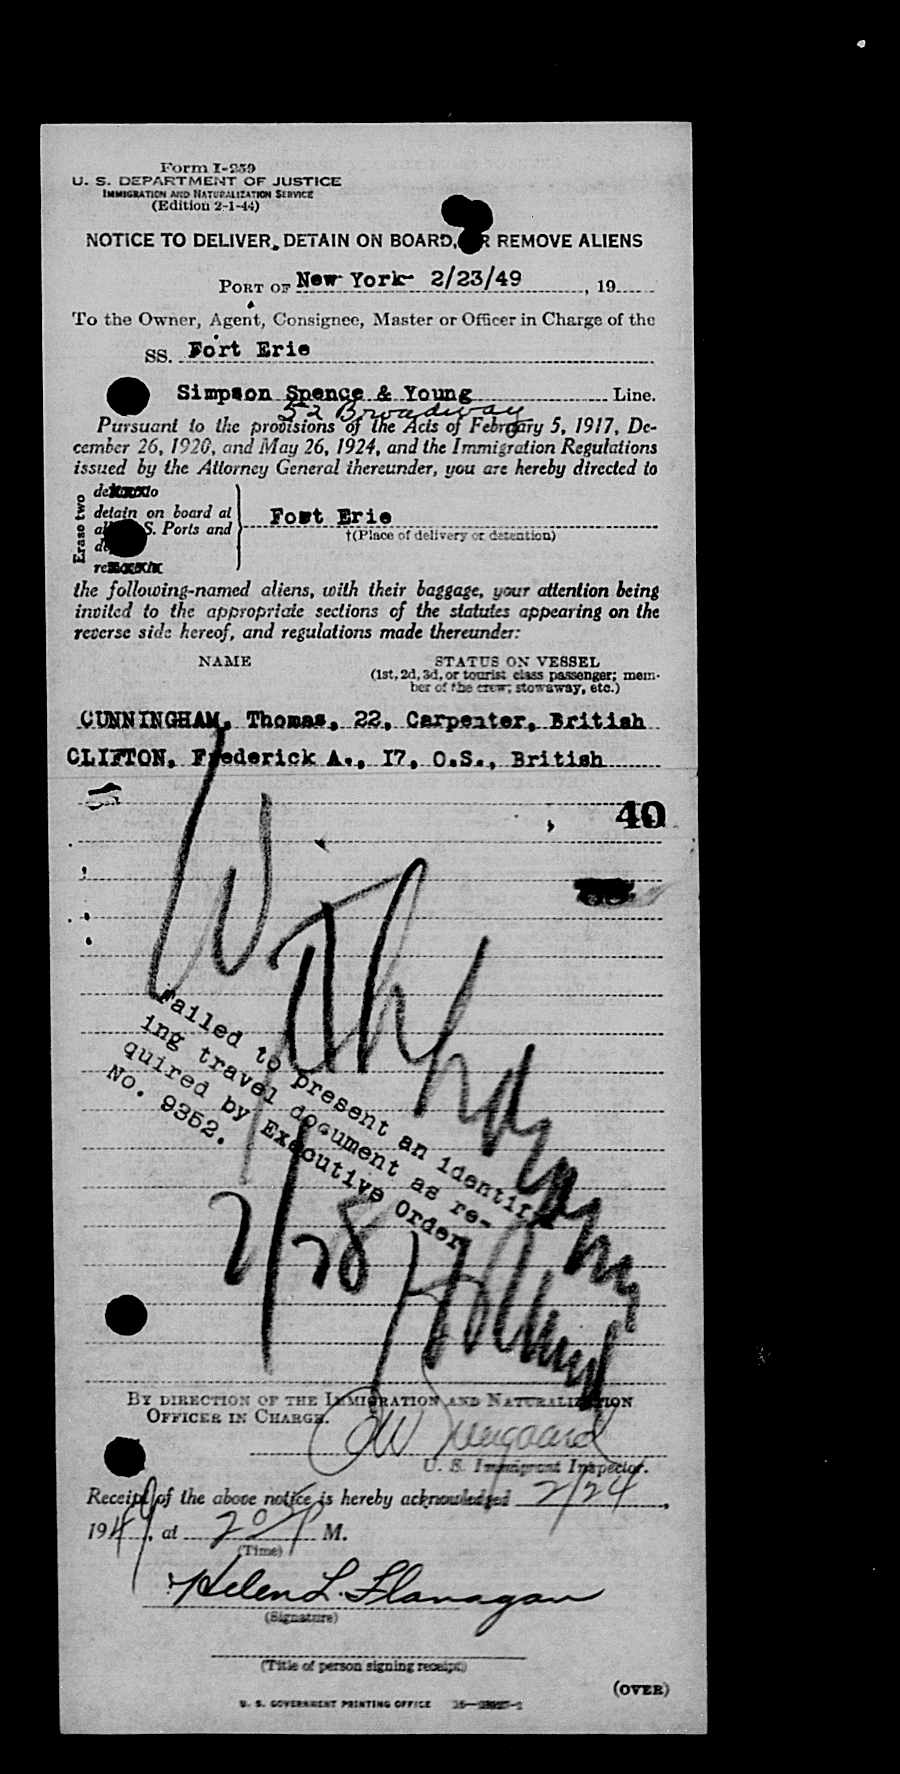 Form I-259
U. S. DEPARTMENT OF JUSTICE
IMMIGRATION AND NATURALIZATION SERVICE
(Edition 2-1-44)
NOTICE TO DELIVER, DETAIN ON BOARD, R REMOVE ALIENS
PORT OF New York 2/23/49, 19
To the Owner, Agent, Consignee, Master or Officer in Charge of the
SS. Fort Erie
Simpson Spence & Young Line.
52 Broadway
Pursuant to the provisions of the Acts of February 5, 1917, De-
cember 26, 1920, and May 26, 1924, and the Immigration Regulations
issued by the Attorney General thereunder, you are hereby directed to
Erase two
detain on board at
S. Ports and
Fort Erie
†(Place of delivery or detention)
the following-named aliens, with their baggage, your attention being
invited to the appropriate sections of the statutes appearing on the
reverse side hereof, and regulations made thereunder:
NAME STATUS ON VESSEL
(1st, 2d, 3d, or tourist class passenger; mem-
ber of the crew; stowaway, etc.)
CUNNINGHAM, Thomas, 22, Carpenter, British
CLIFTON, Frederick A., 17, O.S., British
40
Failed to present an identify-
ing travel document as re-
quired by Executive Order
No. 9352.
2/28
BY DIRECTION OF THE IMMIGRATION AND NATURALIZATION
OFFICER IN CHARGE.
U. S. Immigrant Inspector.
Receipt of the above notice is hereby acknowledged 2/24,
1949, at 2 05 P M.
(Time)
Helen L. Flanagan
(Signature)
(Title of person signing receipt)
(OVER)
U. S. GOVERNMENT PRINTING OFFICE